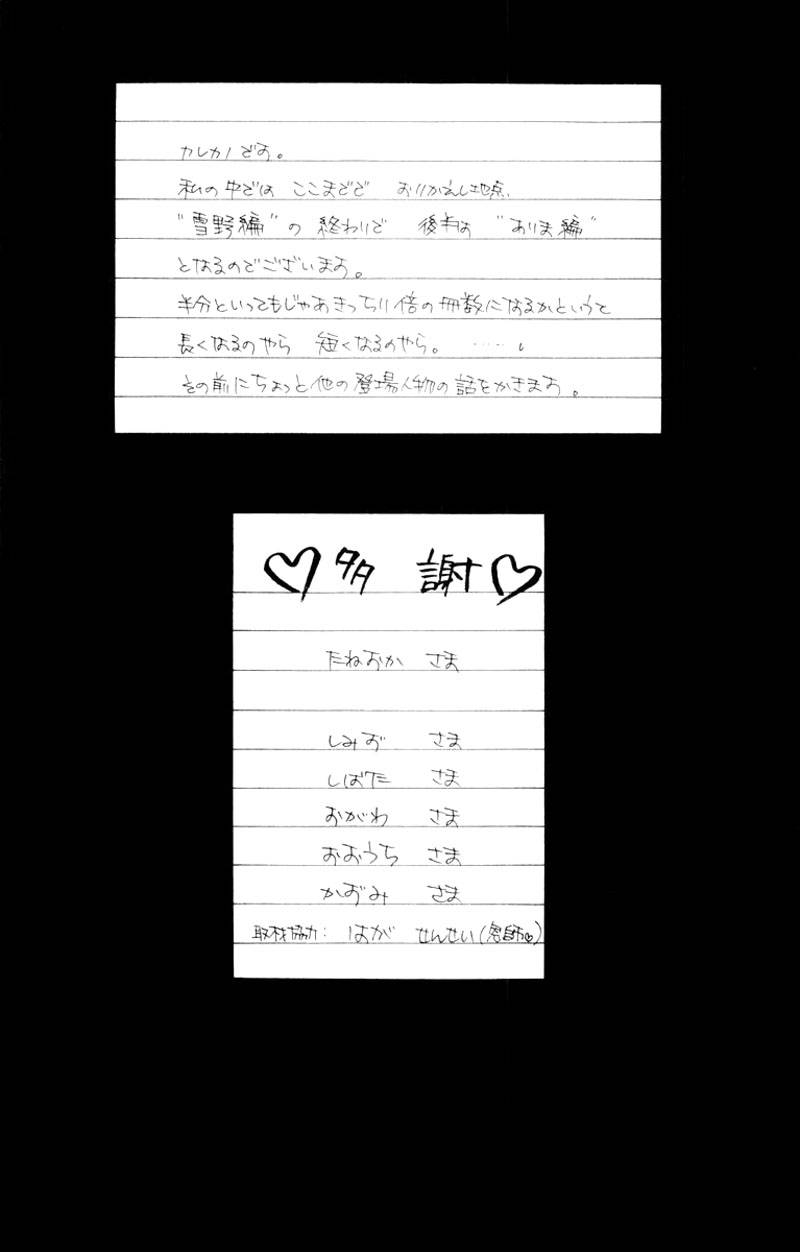 カレカノです。
私の中では ここまでで おりかえし地点、
"雪野編" の 終わりで 後半は "ありま編"
となるのでございます。
半分といってもじゃあきっちり倍の冊数になるかというと
長くなるのやら 短くなるのやら。……。
その前にちょっと他の登場人物の話をかきます。
♡多 謝♡
たねおか さま
しみず さま
しばた さま
おがわ さま
おおうち さま
かずみ さま
取材協力: はが せんせい(恩師♡)